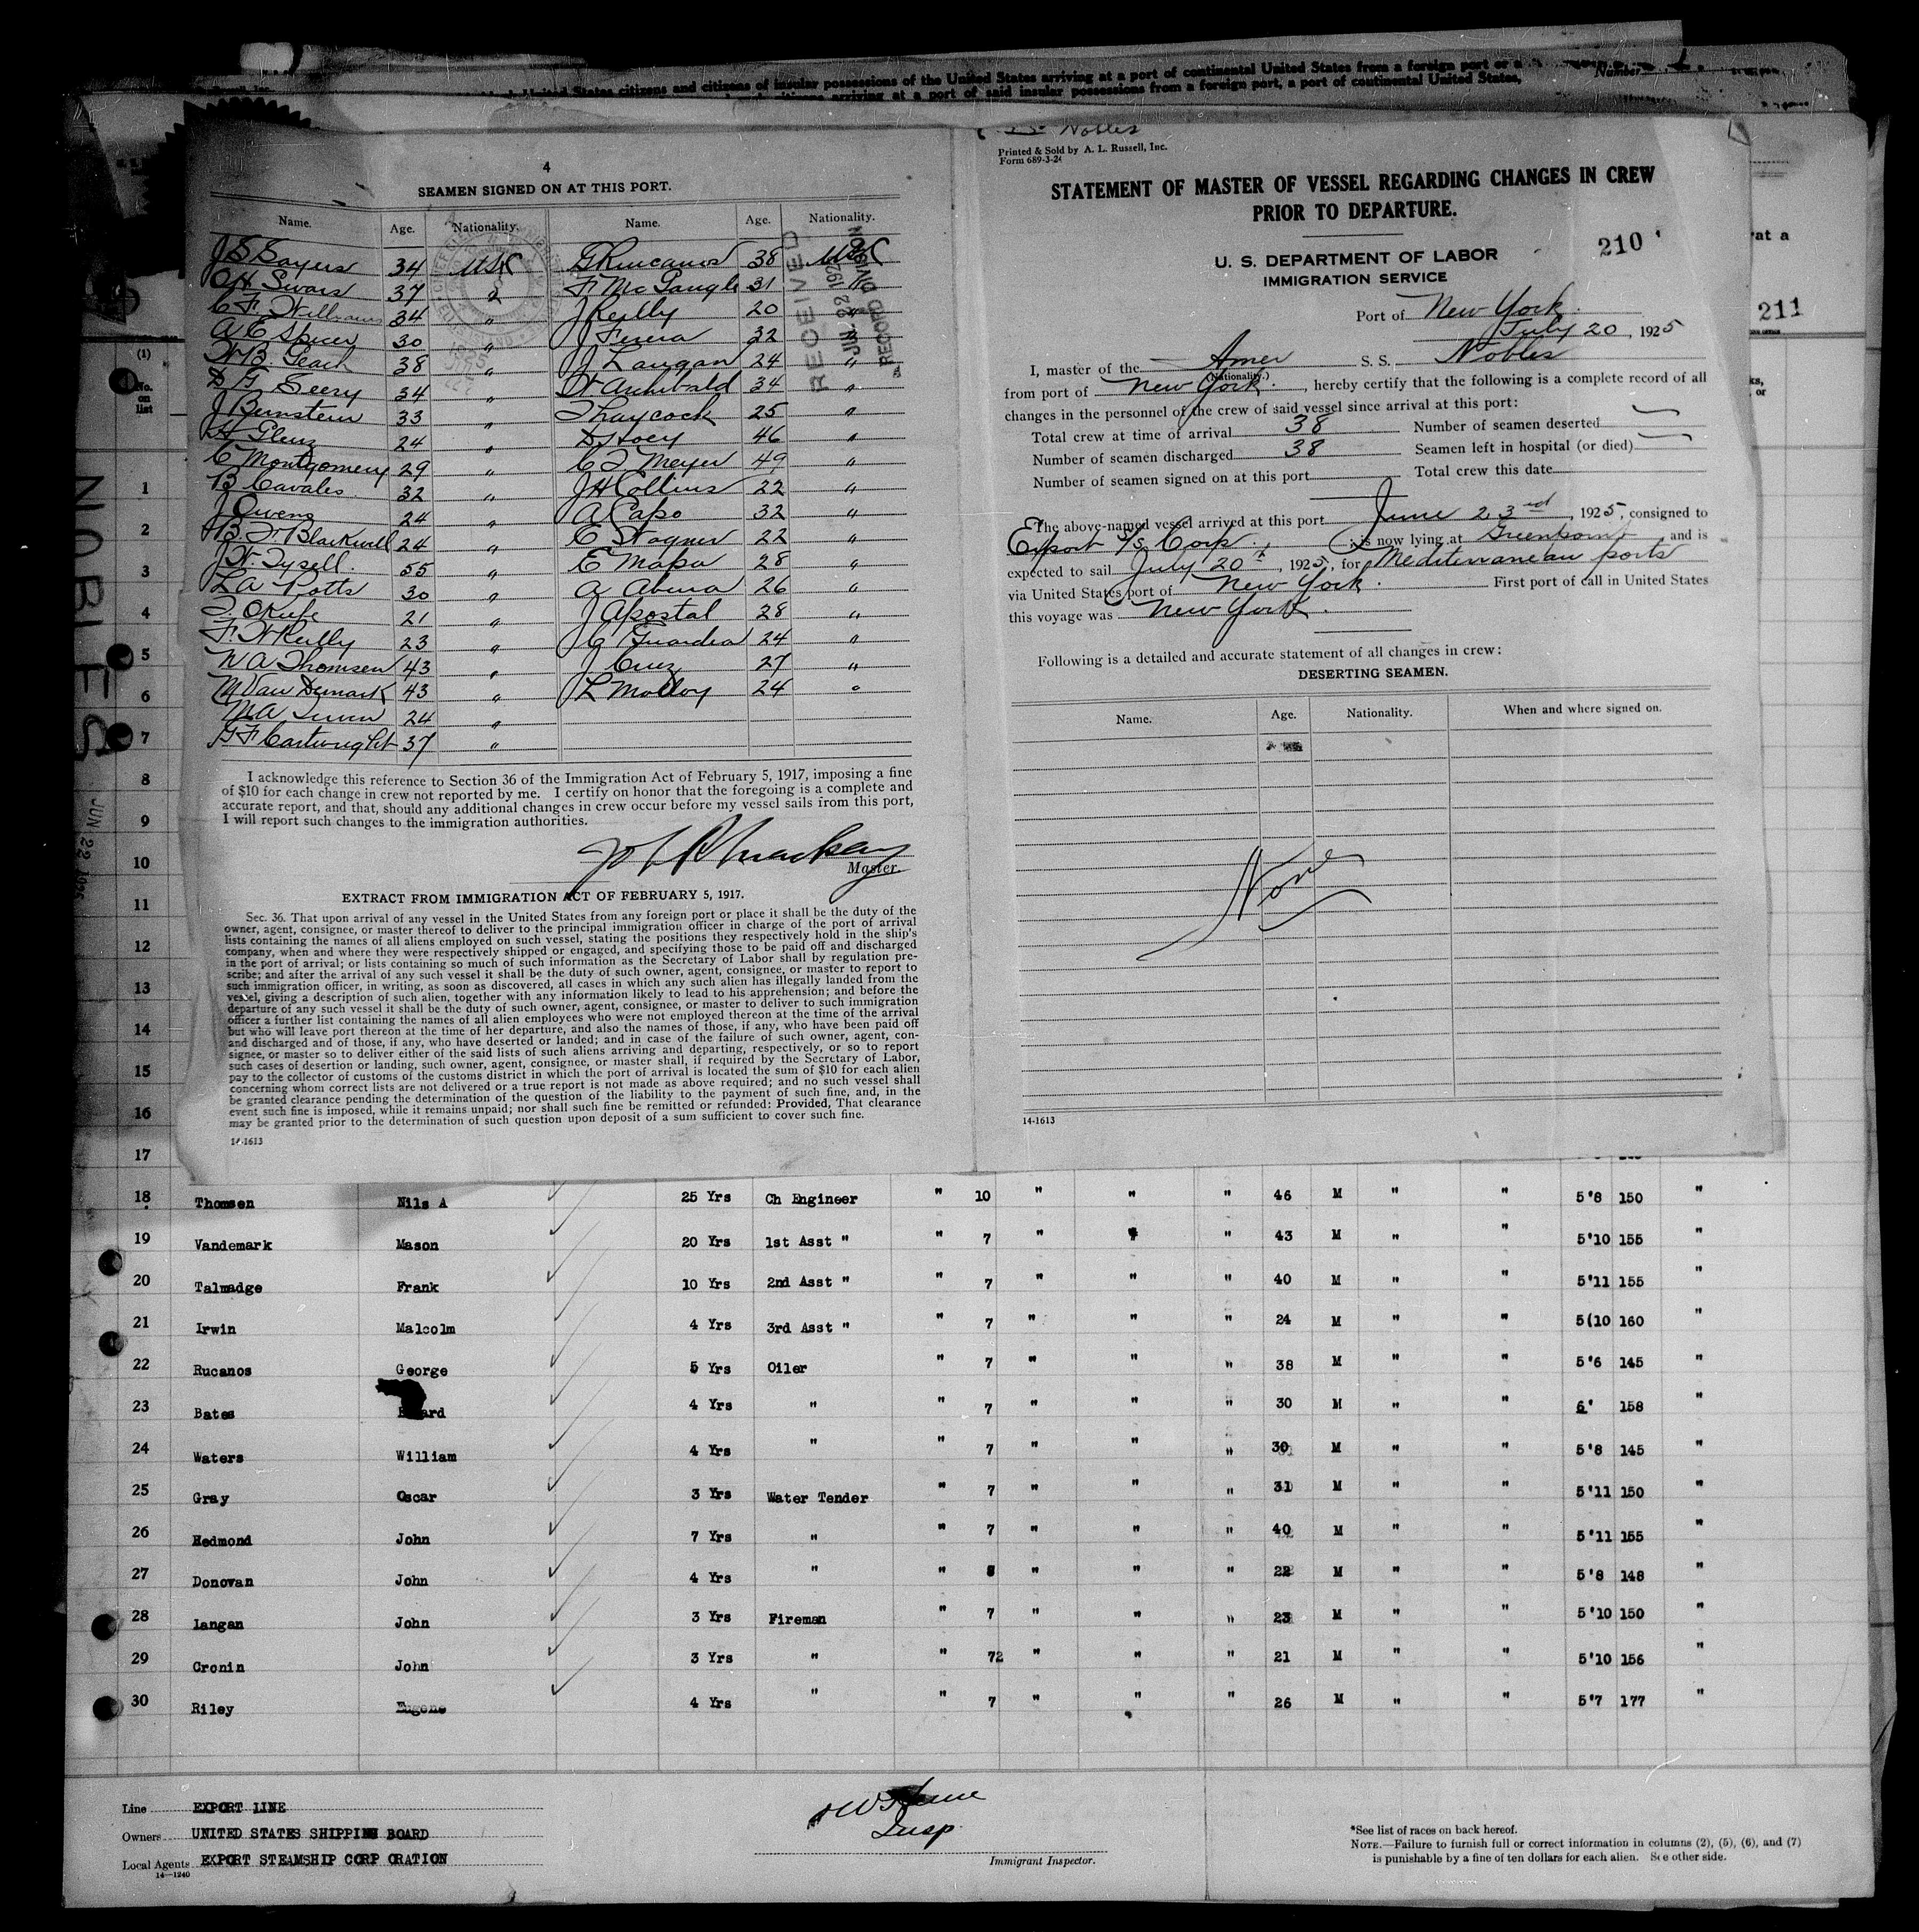 United States citizens and citizens of insular possessions of the United States arriving at a port of continental United States from a foreign port or a
arriving at a port of said insular possessions from a foreign port, a port of continental United States,
Number
4
SEAMEN SIGNED ON AT THIS PORT.
Name. Age. Nationality. Name. Age. Nationality.
J S Sayers 34 USA G Rucanos 38 USA
37 " F Mc 31 "
C F Williams 34 " J Reilly 20 "
A E Spicer 30 " J 32 "
38 " J Langan 24 "
Seery 34 " W Archibald 34 "
J Bernstein 33 " Laycock 25 "
H Glenz 24 " 46 "
C Montgomery 29 " Meyer 49 "
B Cavales 32 " J H Collins 22 "
J Owens 24 " A Capo 32 "
B. W Blackwell 24 " E Wagner 22 "
J W. Tysell. 55 " E Mapa 28 "
L A Potts 30 " A Abena 26 "
21 " J Apostal 28 "
F. W Reilly 23 " C Guardia 24 "
N A Thomsen 43 " J Cruz 27 "
M Van Demark 43 " L Molloy 24 "
M A 24 "
G F Cartwright 37 "
RECEIVED
JUL 22 192
RECORD DIVISION
I acknowledge this reference to Section 36 of the Immigration Act of February 5, 1917, imposing a fine
of $10 for each change in crew not reported by me. I certify on honor that the foregoing is a complete and
accurate report, and that, should any additional changes in crew occur before my vessel sails from this port,
I will report such changes to the immigration authorities.
Master.
EXTRACT FROM IMMIGRATION ACT OF FEBRUARY 5, 1917.
Sec. 36. That upon arrival of any vessel in the United States from any foreign port or place it shall be the duty of the
owner, agent, consignee, or master thereof to deliver to the principal immigration officer in charge of the port of arrival
lists containing the names of all aliens employed on such vessel, stating the positions they respectively hold in the ship's
company, when and where they were respectively shipped or engaged, and specifying those to be paid off and discharged
in the port of arrival; or lists containing so much of such information as the Secretary of Labor shall by regulation pre-
scribe; and after the arrival of any such vessel it shall be the duty of such owner, agent, consignee, or master to report to
such immigration officer, in writing, as soon as discovered, all cases in which any such alien has illegally landed from the
vessel, giving a description of such alien, together with any information likely to lead to his apprehension; and before the
departure of any such vessel it shall be the duty of such owner, agent, consignee, or master to deliver to such immigration
officer a further list containing the names of all alien employees who were not employed thereon at the time of the arrival
but who will leave port thereon at the time of her departure, and also the names of those, if any, who have been paid off
and discharged and of those, if any, who have deserted or landed; and in case of the failure of such owner, agent, con-
signee, or master so to deliver either of the said lists of such aliens arriving and departing, respectively, or so to report
such cases of desertion or landing, such owner, agent, consignee, or master shall, if required by the Secretary of Labor,
pay to the collector of customs of the customs district in which the port of arrival is located the sum of $10 for each alien
concerning whom correct lists are not delivered or a true report is not made as above required; and no such vessel shall
be granted clearance pending the determination of the question of the liability to the payment of such fine, and, in the
event such fine is imposed, while it remains unpaid; nor shall such fine be remitted or refunded: Provided, That clearance
may be granted prior to the determination of such question upon deposit of a sum sufficient to cover such fine.
14-1613
S.S. Nobles
Printed & Sold by A. L. Russell, Inc.
Form 689-3-24
STATEMENT OF MASTER OF VESSEL REGARDING CHANGES IN CREW
PRIOR TO DEPARTURE.
210
U. S. DEPARTMENT OF LABOR
IMMIGRATION SERVICE
Port of New York.
July 20, 1925
I, master of the Amer S. S. Nobles
(Nationality.)
from port of New York, hereby certify that the following is a complete record of all
changes in the personnel of the crew of said vessel since arrival at this port:
Total crew at time of arrival 38 Number of seamen deserted
Number of seamen discharged 38 Seamen left in hospital (or died)
Number of seamen signed on at this port Total crew this date
The above-named vessel arrived at this port June 23rd, 1925, consigned to
Export S/S Corp.; is now lying at Greenpoint, and is
expected to sail July 20th, 1925, for Mediterranean ports
via United States port of New York. First port of call in United States
this voyage was New York.
Following is a detailed and accurate statement of all changes in crew:
DESERTING SEAMEN.
Name. Age. Nationality. When and where signed on.
None
14-1613
at a
211
(1)
No. on list
NOBLES
JUN 22 1925
1
2
3
4
5
6
7
8
9
10
11
12
13
14
15
16
17
18 Thomsen Nils A 25 Yrs Ch Engineer " 10 " " " 46 M " " 5'8 150 "
19 Vandemark Mason 20 Yrs 1st Asst " " 7 " " " 43 M " " 5'10 155 "
20 Talmadge Frank 10 Yrs 2nd Asst " " 7 " " " 40 M " " 5'11 155 "
21 Irwin Malcolm 4 Yrs 3rd Asst " " 7 " " " 24 M " " 5(10 160 "
22 Rucanos George 5 Yrs Oiler " 7 " " " 38 M " " 5'6 145 "
23 Bates 4 Yrs " " 7 " " " 30 M " " 6' 158 "
24 Waters William 4 Yrs " " 7 " " " 30 M " " 5'8 145 "
25 Gray Oscar 3 Yrs Water Tender " 7 " " " 31 M " " 5'11 150 "
26 Redmond John 7 Yrs " " 7 " " " 40 M " " 5'11 155 "
27 Donovan John 4 Yrs " " " " " 22 M " " 5'8 148 "
28 Langan John 3 Yrs Fireman " 7 " " " 23 M " " 5'10 150 "
29 Cronin John 3 Yrs " " 72 " " " 21 M " " 5'10 156 "
30 Riley Eugene 4 Yrs " " 7 " " " 26 M " " 5'7 177 "
Line EXPORT LINE
Owners UNITED STATES SHIPPING BOARD
Local Agents EXPORT STEAMSHIP CORP ORATION
14—1240
Insp.
Immigrant Inspector.
*See list of races on back hereof.
NOTE.—Failure to furnish full or correct information in columns (2), (5), (6), and (7)
is punishable by a fine of ten dollars for each alien. See other side.